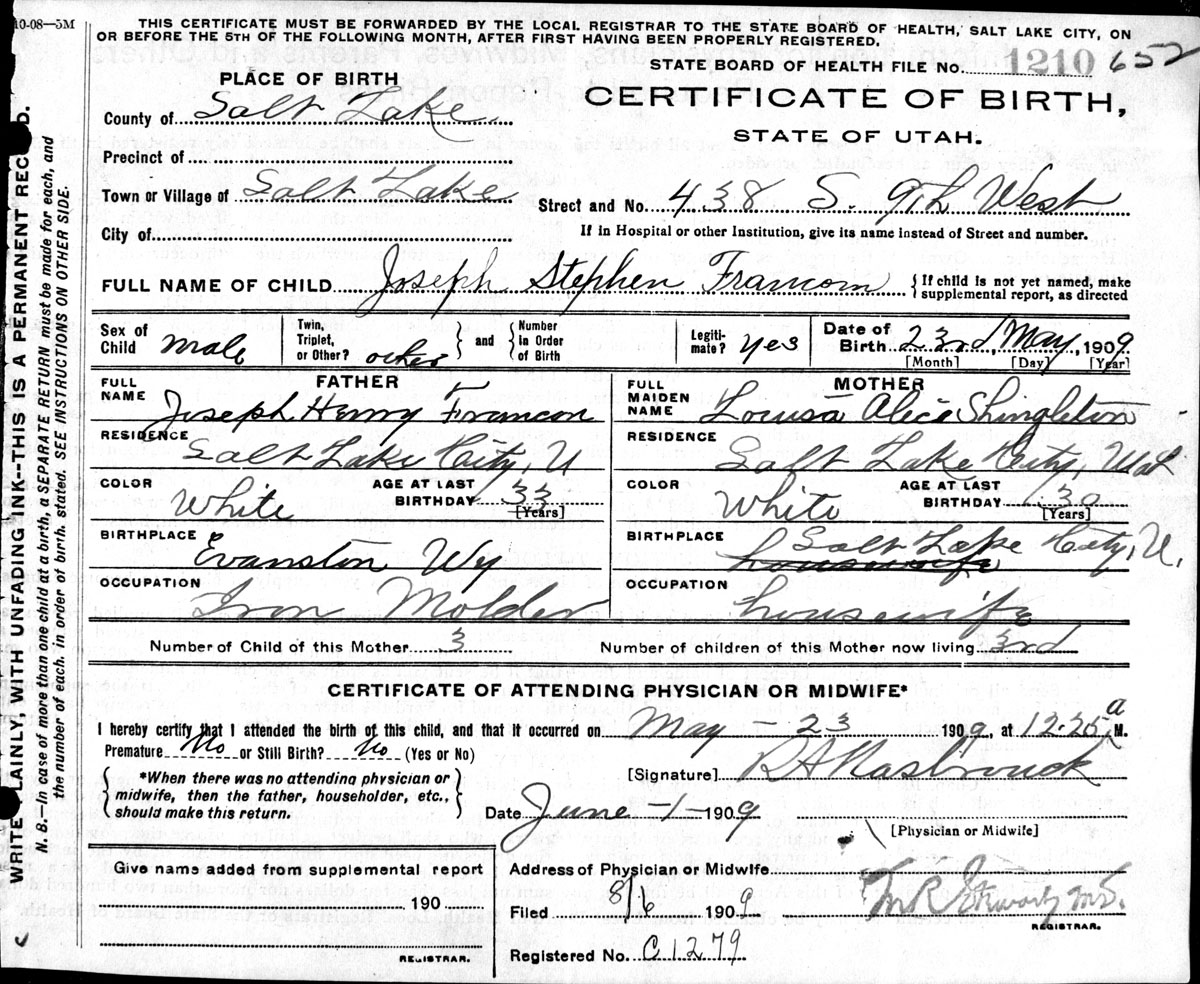 10-08—5M
THIS CERTIFICATE MUST BE FORWARDED BY THE LOCAL REGISTRAR TO THE STATE BOARD OF HEALTH, SALT LAKE CITY, ON
OR BEFORE THE 5TH OF THE FOLLOWING MONTH, AFTER FIRST HAVING BEEN PROPERLY REGISTERED.
STATE BOARD OF HEALTH FILE No. 1210 652
PLACE OF BIRTH
CERTIFICATE OF BIRTH,
STATE OF UTAH.
County of Salt Lake
Precinct of
Town or Village of Salt Lake
Street and No. 438 S. 9th West
City of
If in Hospital or other Institution, give its name instead of Street and number.
FULL NAME OF CHILD Joseph Stephen Francom { If child is not yet named, make
supplemental report, as directed
Sex of Child male
Twin, Triplet, or Other? other } and { Number in Order of Birth
Legiti-mate? yes
Date of Birth 23rd, May, 1909
[Month] [Day] [Year]
FATHER
FULL NAME Joseph Henry Francom
MOTHER
FULL MAIDEN NAME Louisa Alice Shingleton
RESIDENCE Salt Lake City, U
RESIDENCE Salt Lake City, Utah
COLOR White AGE AT LAST BIRTHDAY 33 [Years]
COLOR White AGE AT LAST BIRTHDAY 30 [Years]
BIRTHPLACE Evanston Wy
BIRTHPLACE Salt Lake City, U.
housewife
OCCUPATION Iron Molder
OCCUPATION housewife
Number of Child of this Mother 3 Number of children of this Mother now living 3rd
CERTIFICATE OF ATTENDING PHYSICIAN OR MIDWIFE*
I hereby certify that I attended the birth of this child, and that it occurred on May - 23 1909, at 12.25 a M.
Premature No or Still Birth? No (Yes or No)
{ *When there was no attending physician or
midwife, then the father, householder, etc.,
should make this return. }
[Signature] R A Hasbrouck
Date June -1- 1909
[Physician or Midwife]
Give name added from supplemental report
190
REGISTRAR.
Address of Physician or Midwife
Filed 8/6 1909
REGISTRAR.
Registered No. C1279
WRITE PLAINLY, WITH UNFADING INK--THIS IS A PERMANENT RECORD.
N. B.—In case of more than one child at a birth, a SEPARATE RETURN must be made for each, and
the number of each, in order of birth, stated. SEE INSTRUCTIONS ON OTHER SIDE.